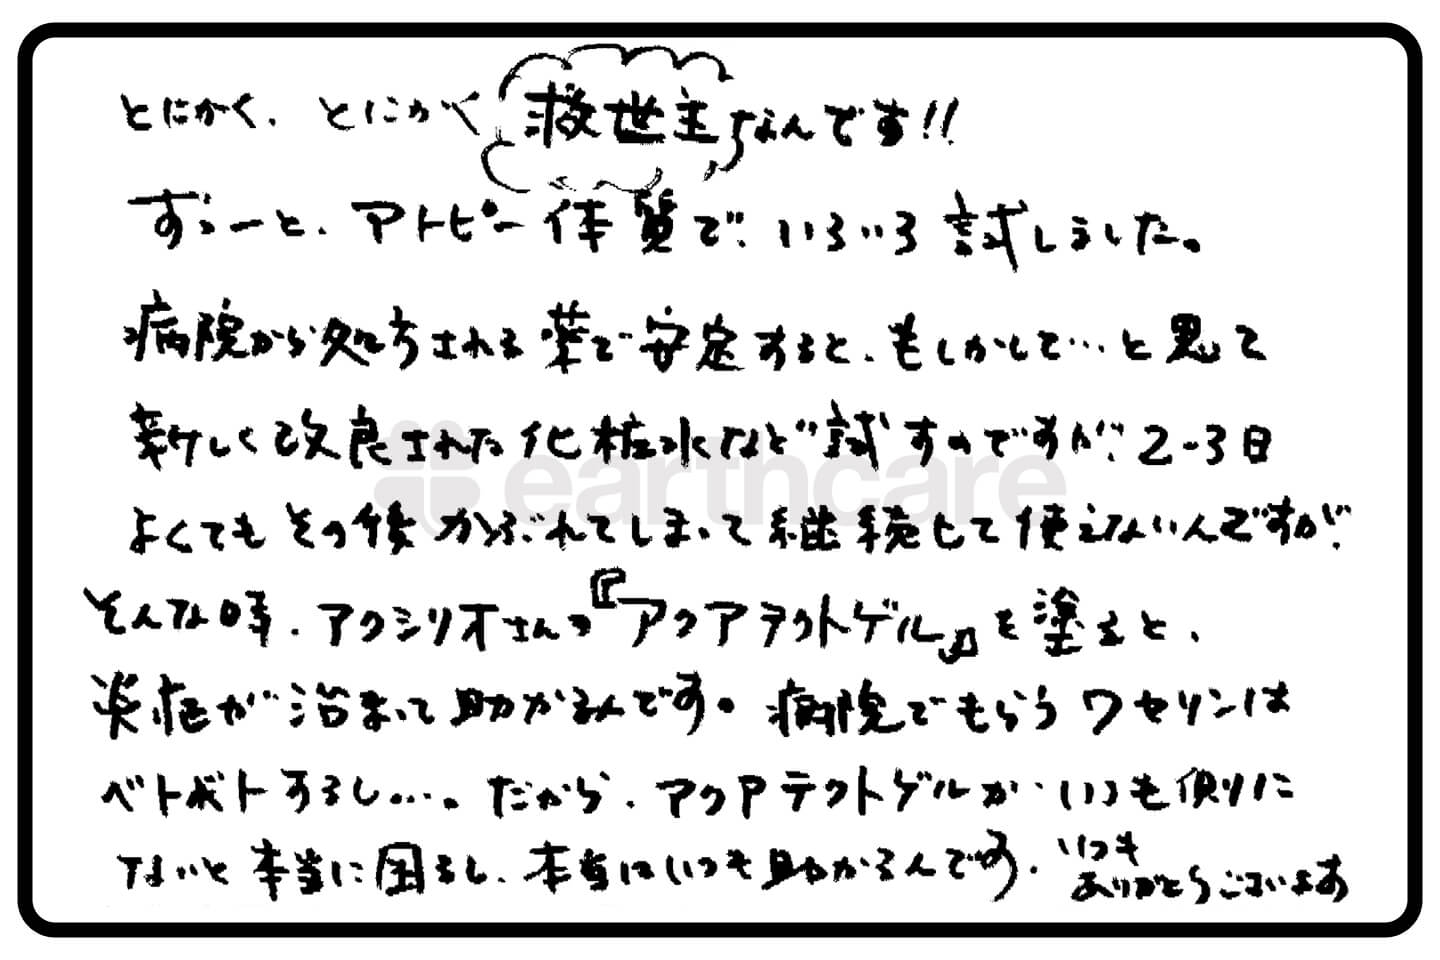 とにかく、とにかく救世主なんです!!
ずぅーと、アトピー体質で、いろいろ試しました。
病院から処方される薬で安定すると、もしかして…と思って
新しく改良された化粧水など試すのですが、2-3日
よくてもその後かぶれてしまって継続して使えないんですが、
そんな時、アクシリオさんの『アクアテクトゲル』を塗ると、
炎症が治まって助かるんです。病院でもらうワセリンは
ベトベトするし…。だから、アクアテクトゲルが、いつも側に
ないと本当に困るし、本当にいつも助かるんです。いつも
ありがとうございます
earthcare